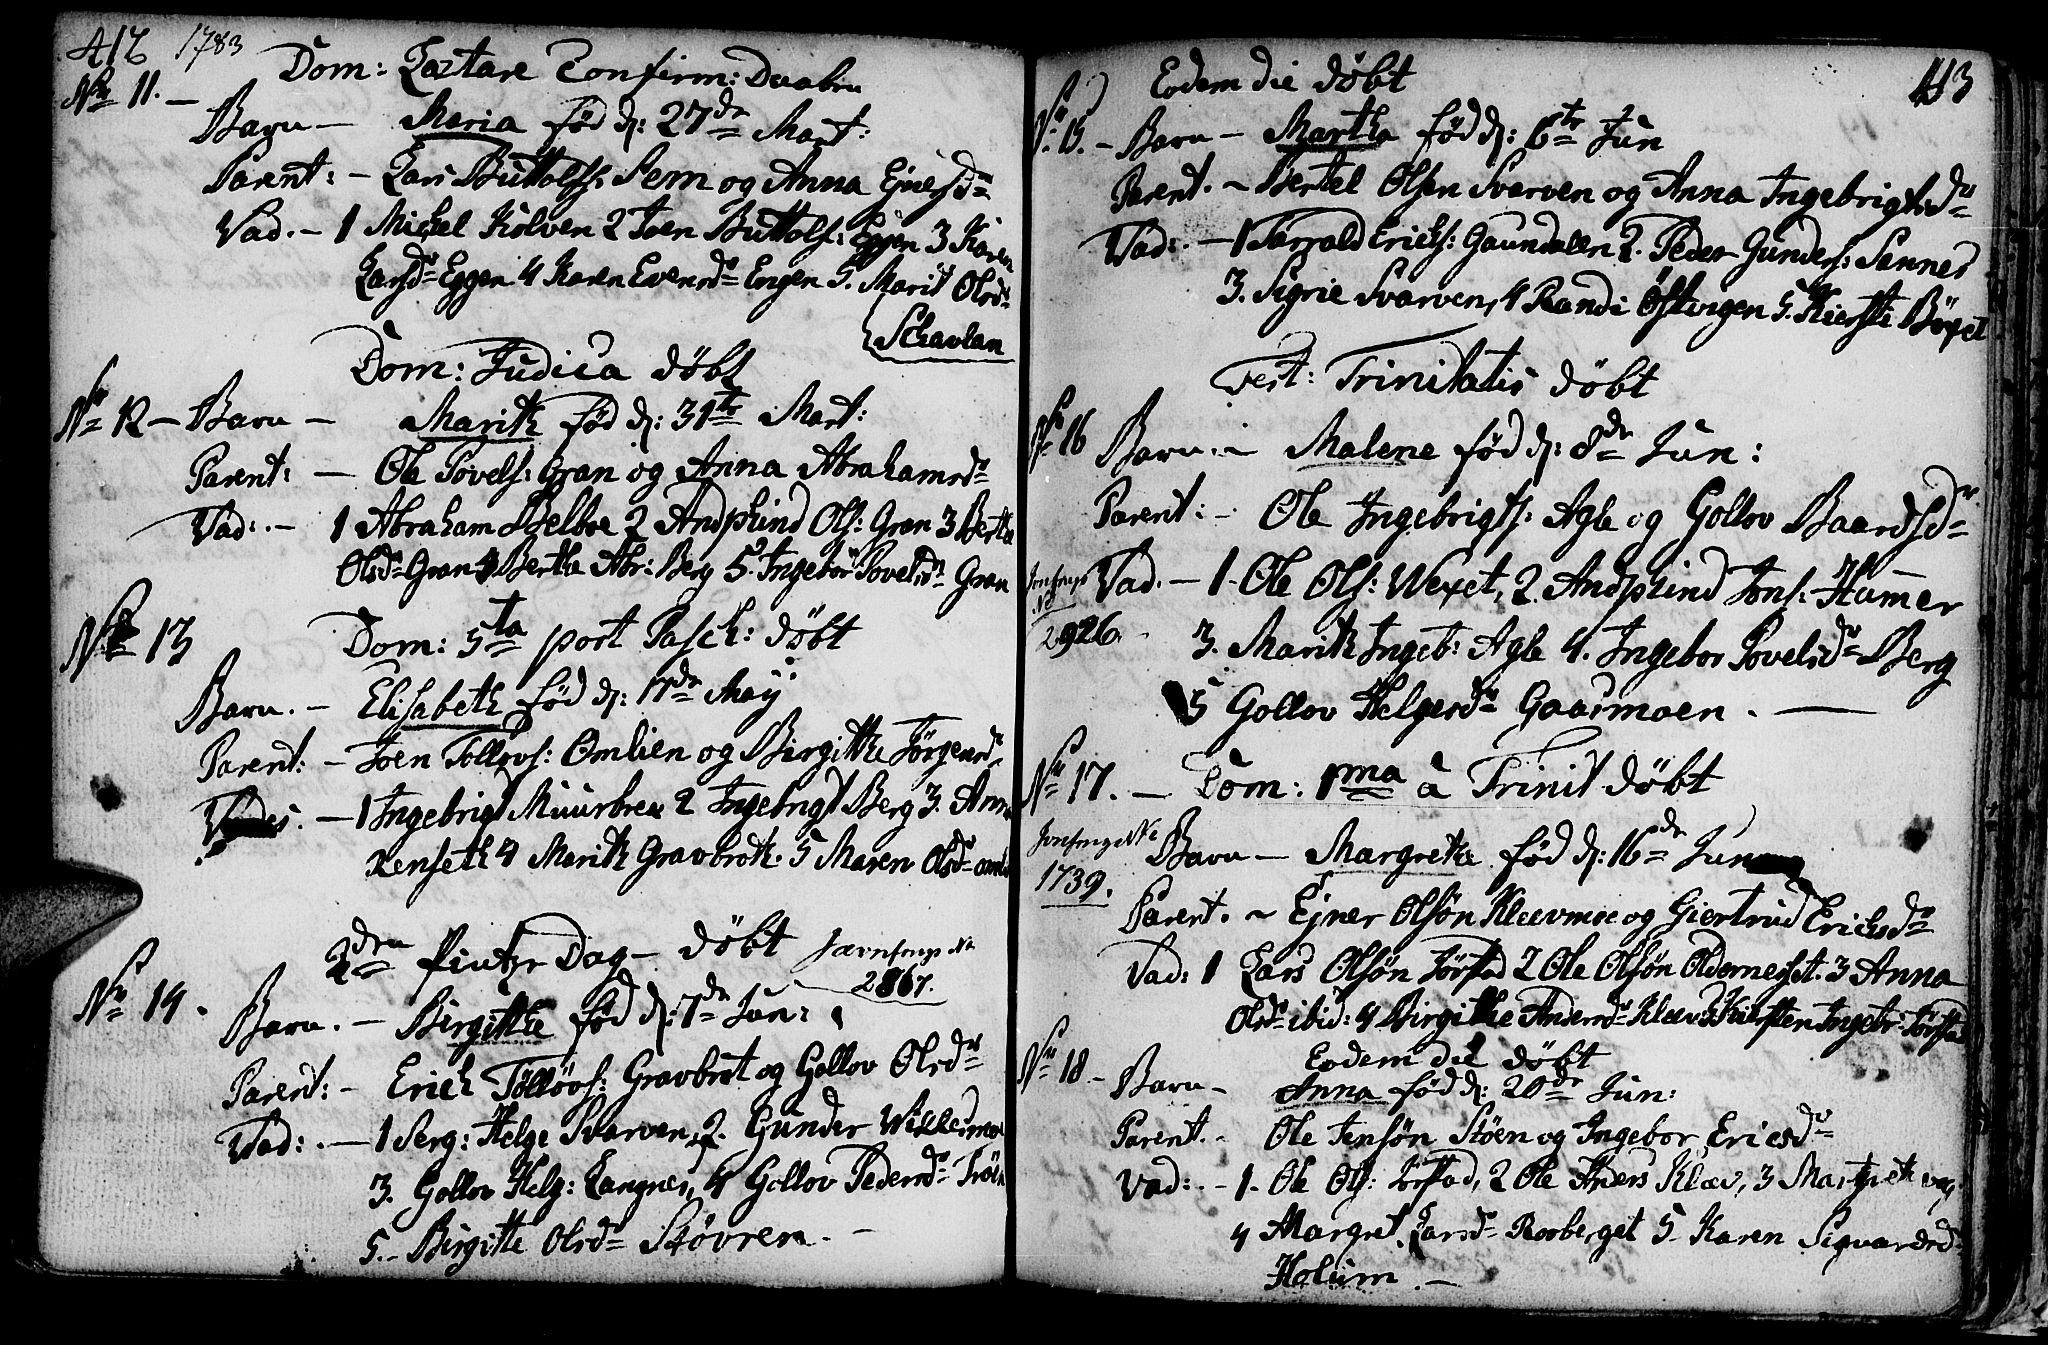 412 1783
Dom: Lætare Confirm: Daaben
No 11. —
Barn — Maria fød d: 27de Mart:
Parent: — Lars Buttolfs: Sem og Anna Ejnersdr
Vad. — 1 Mickel Kolven 2 Joen Buttols: Eggen 3 Karen
Larsdr Eggen 4 Karen Evensdr Engen 5. Marit Olsdr
Schavlan
Dom: Judica døbt
No 12 — Barn — Marith fød d: 31te Mart:
Parent: — Ole Povels: Gran og Anna Abrahamsdr
Vad: — 1 Abraham Belboe 2 Andphind Ols: Gran 3 Berthe
Olsdr Gran 4 Berthe Abr: Berg 5. Ingebor Povelsdr Gran
No 13 Dom: 5ta post Pasch: døbt
Barn. — Elisabeth fød d: 17de May
Parent: — Joen Tollovs: Omlien og Birgitthe Jørgensdr
— 1 Ingebrigt Muurbrex 2 Ingebrigt Berg 3. Anne
xenseth 4 Marith Gravbrøth. 5 Maren Olsdr
2den Pintze Dag — døbt Jævnfreng No
2867.
No 14. Barn. — Birgitthe fød d: 7de Jun:
Parent: — Erich Tölløvs: Gravbrøt og Gollov Olsdr
Vad: — 1 Serg: Helge Svarven, 2. Gunder
3. Gollov Helg: Langnes, 4 Gollov Pedersdr
5. — Birgitte Olsdr Støvren. —
413
Eodem die døbt
No 15. — Barn — Martha fød d: 6te Jun
Parent. — Bertel Olsen Svarven og Anna Ingebrigtsdr
Vad: — 1 Tarrald Erichs: Gaundalen 2. Peder Gunders: Sannes
3. Sigrie Svarven, 4 Randi Østvigen 5. Kierste
Fest: Trinitatis døbt
No 16 Barn. — Malene fød d: 8de Jun:
Parent: — Ole Ingebrigts. Agle og Gollov Baardsdr
Vad. — 1. Ole Ols: Wexet, 2. Andphind Jons: Hammer
2926.
3. Marith Ingeb: Agle 4. Ingebor Povelsdr Berg
5 Gollov Helgesdr Gaasmoen. —
No 17. — Dom: 1ma a Trinit døbt
1739. Barn — Margrethe fød d: 16de Jun
Parent. — Ejner Olsøn Kleevmoe og Giertrud Erichsdr
Vad: 1 Lars Olsøn Jørstad 2 Ole Olsøn 3 Anna
Olsdr ibid: 4 Birgithe Andersdr Kleev 5 Kiersten Ingebr: Jørstad
Eodem die døbt
No 18 — Barn — Anna fød d: 20de Jun:
Parent. — Ole Jensøn Støen og Ingebor Ericsdr
Vad: — 1. Ole Ols: Jørstad, 2 Ole Anders Kleev, 3 Margreth
4 Margret Larsdr Rosberget 5 Karen Sigvardsdr
Holum. —